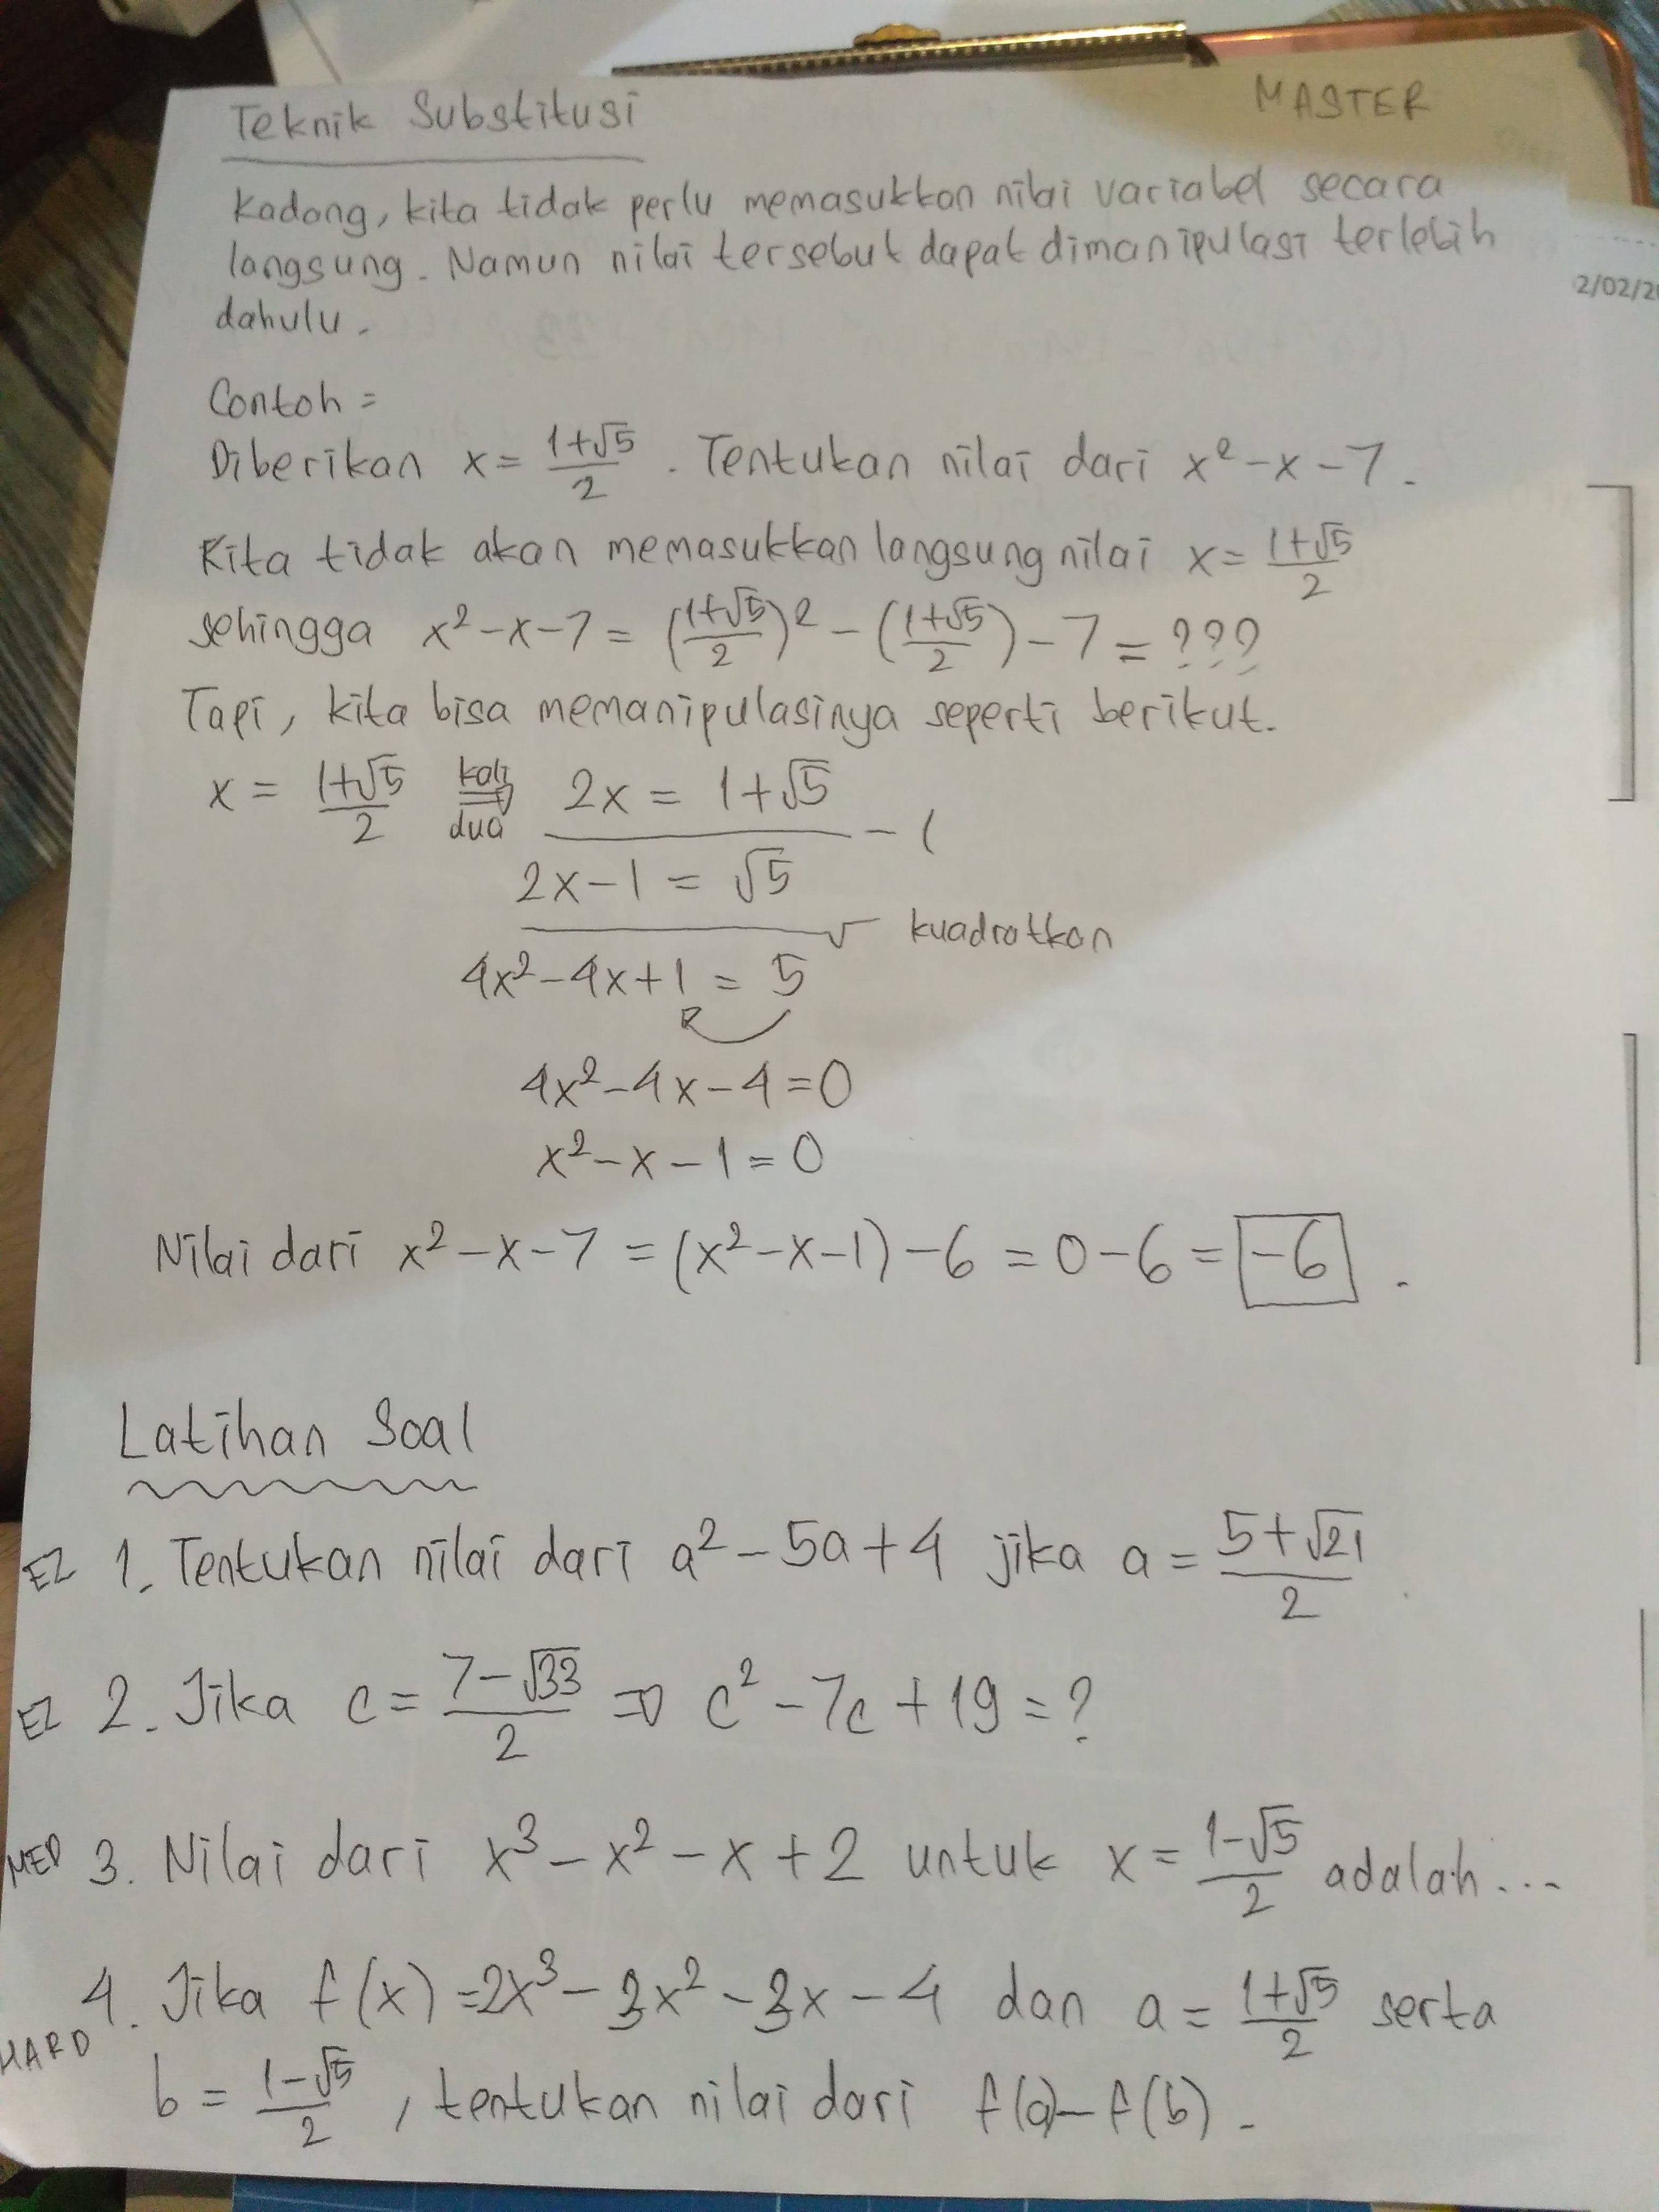 MASTER
Teknik Substitusi
Kadang, kita tidak perlu memasukkan nilai variabel secara
langsung. Namun nilai tersebut dapat dimanipulasi terlebih
dahulu.
2/02/2
Contoh =
Diberikan x = (1+√5)/2 . Tentukan nilai dari x² - x - 7.
Kita tidak akan memasukkan langsung nilai x = (1+√5)/2
sehingga x² - x - 7 = ((1+√5)/2)² - ((1+√5)/2) - 7 = ???
Tapi, kita bisa memanipulasinya seperti berikut.
x = (1+√5)/2 kali dua ⇒ 2x = 1+√5
- 1
2x - 1 = √5
kuadratkan
4x² - 4x + 1 = 5
4x² - 4x - 4 = 0
x² - x - 1 = 0
Nilai dari x² - x - 7 = (x² - x - 1) - 6 = 0 - 6 = -6 .
Latihan Soal
EZ 1. Tentukan nilai dari a² - 5a + 4 jika a = (5+√21)/2
EZ 2. Jika c = (7-√33)/2 ⇒ c² - 7c + 19 = ?
MED 3. Nilai dari x³ - x² - x + 2 untuk x = (1-√5)/2 adalah...
HARD 4. Jika f(x) = 2x³ - 3x² - 3x - 4 dan a = (1+√5)/2 serta
b = (1-√5)/2 , tentukan nilai dari f(a) - f(b).